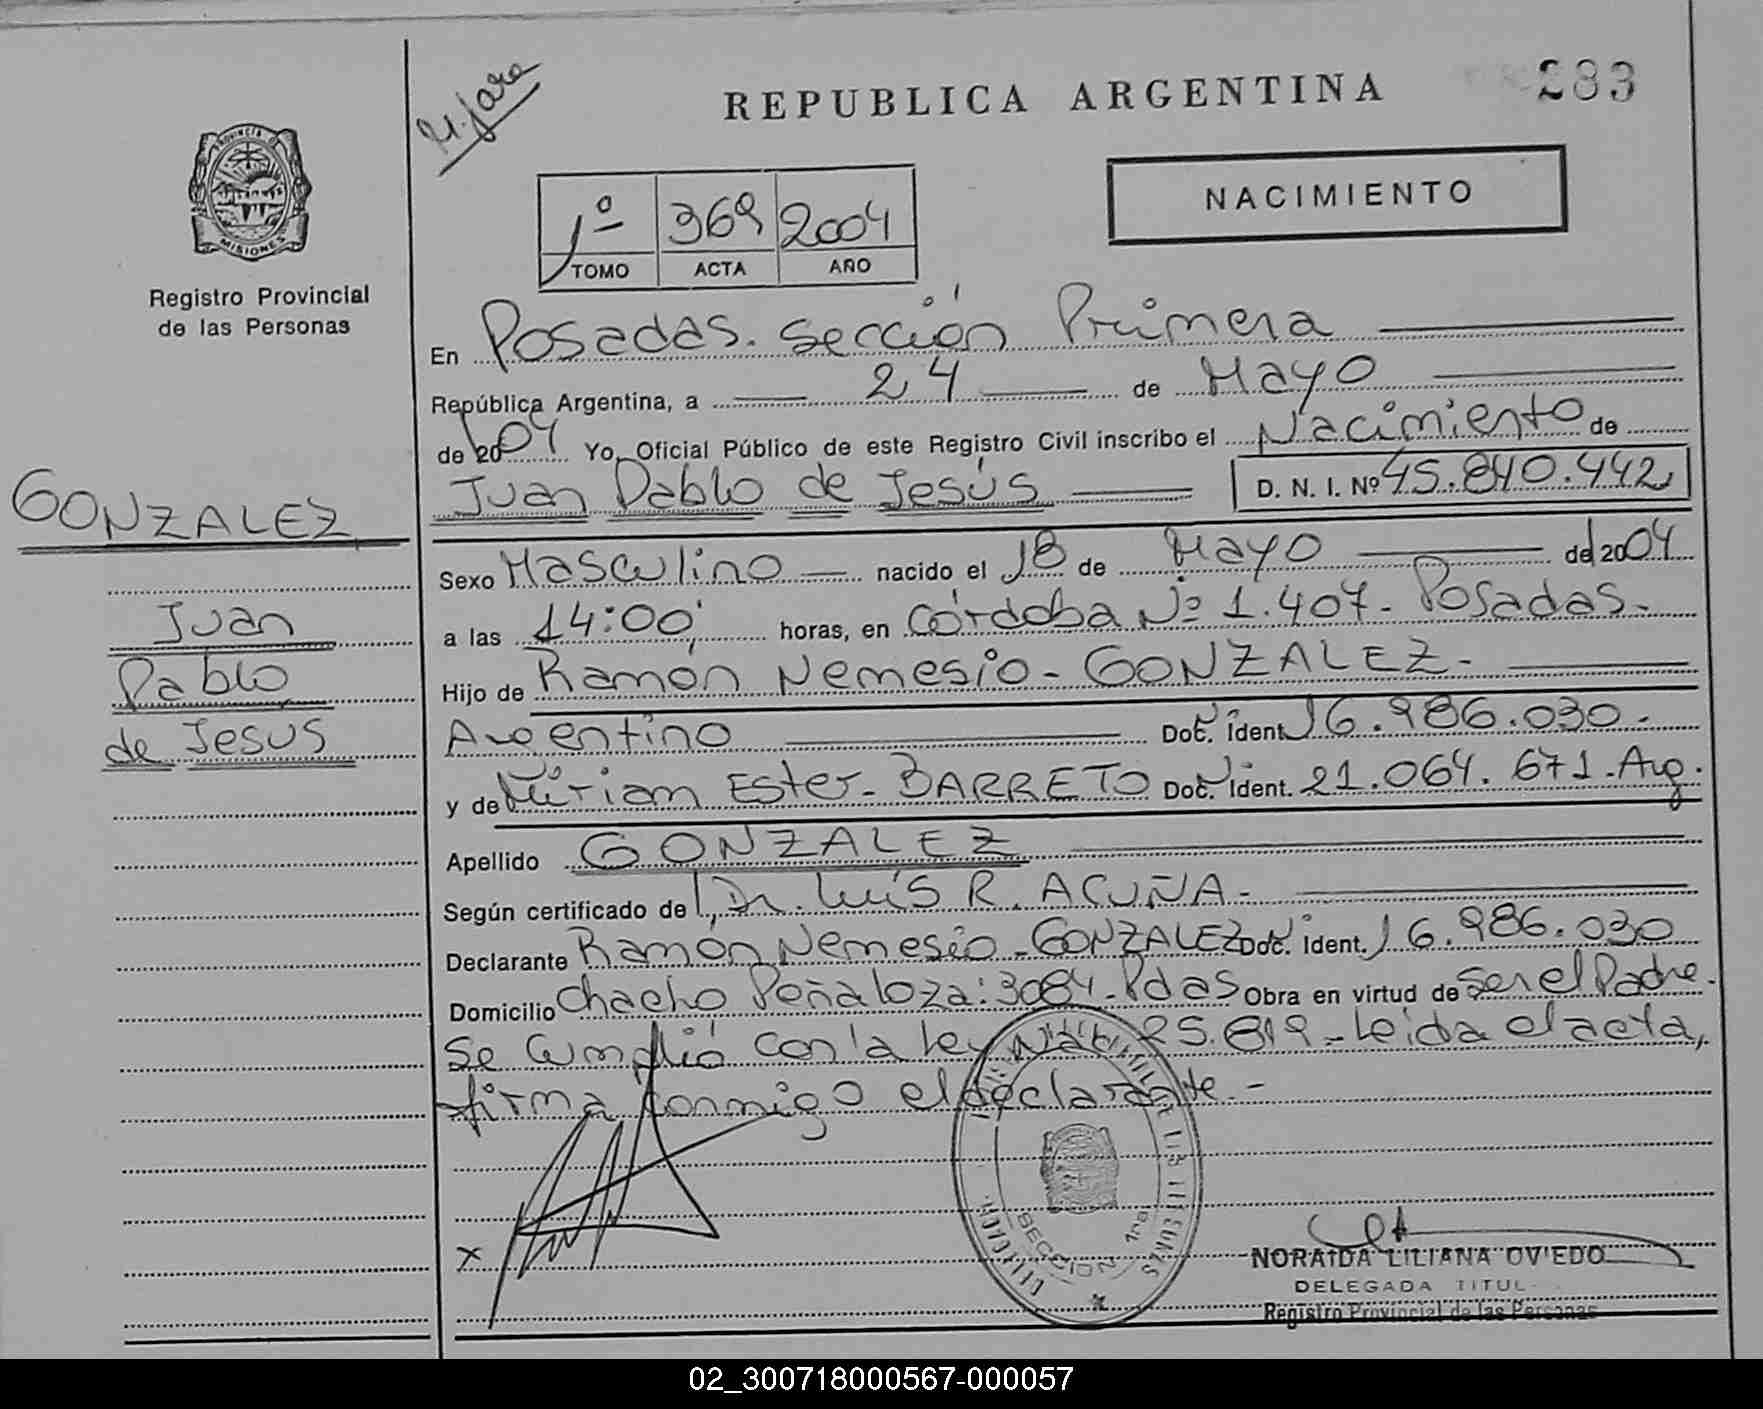 M. Jara
REPUBLICA ARGENTINA
283
PROVINCIA DE
MISIONES
Registro Provincial
de las Personas
1º 369 2004
TOMO ACTA AÑO
NACIMIENTO
En Posadas. Sección Primera
República Argentina, a 24 de Mayo
de 2004 Yo, Oficial Público de este Registro Civil inscribo el Nacimiento de
Juan Pablo de Jesús D. N. I. Nº 45.840.442
GONZALEZ
Juan
Pablo
de Jesus
Sexo Masculino nacido el 18 de Mayo del 2004
a las 14:00 horas, en Córdoba Nº 1.407- Posadas-
Hijo de Ramón Nemesio- GONZALEZ-
Argentino Doc. ident. 16.986.030-
y de Miriam Ester- BARRETO Doc. Ident. 21.064.671-Arg.
Apellido GONZALEZ
Según certificado del, Dr. Luis R. ACUÑA-
Declarante Ramón Nemesio-GONZALEZ Doc. ident. 16.986.030
Domicilio Chacho Peñaloza: 3084-Pdas Obra en virtud de ser el Padre-
Se cumplió con la ley Nac. 25.819-Leida el acta,
firma conmigo el declarante.-
SECCION 1ra
x
NORAIDA LILIANA OVIEDO
DELEGADA TITUL
Registro Provincial de las Personas
02_300718000567-000057